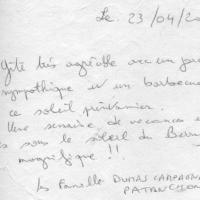 Le 23/04/20
Gîte très agréable avec un jar
sympathique et un barbecue
ce soleil printanier.
Une semaine de vacances e
s sous le soleil du Berr
magnifique !!
La Famille DUMAS CARPAGNA
PATANCHON